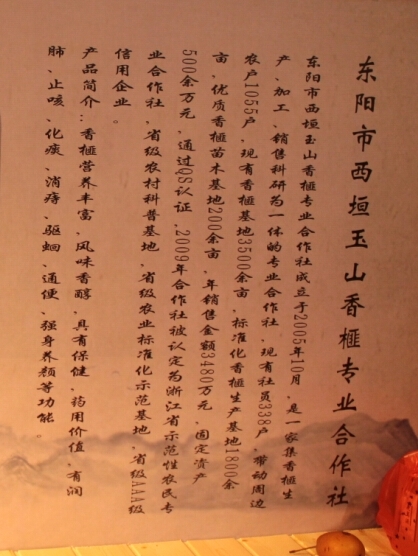 东阳市西垣玉山香榧专业合作社
东阳市西垣玉山香榧专业合作社成立于2005年10月，是一家集香榧生
产、加工、销售科研为一体的专业合作社，现有社员338户，带动周边
农户1055户，现有香榧基地3500余亩，标准化香榧生产基地1800余
亩，优质香榧苗木基地200余亩，年销售金额3480万元，固定资产
500余万元，通过QS认证，2009年合作社被认定为浙江省示范性农民专
业合作社，省级农村科普基地，省级农业标准化示范基地，省级AAA级
信用企业。
产品简介：香榧营养丰富，风味香醇，具有保健、药用价值，有润
肺、止咳、化痰、消痔、驱蛔、通便、强身养颜等功能。